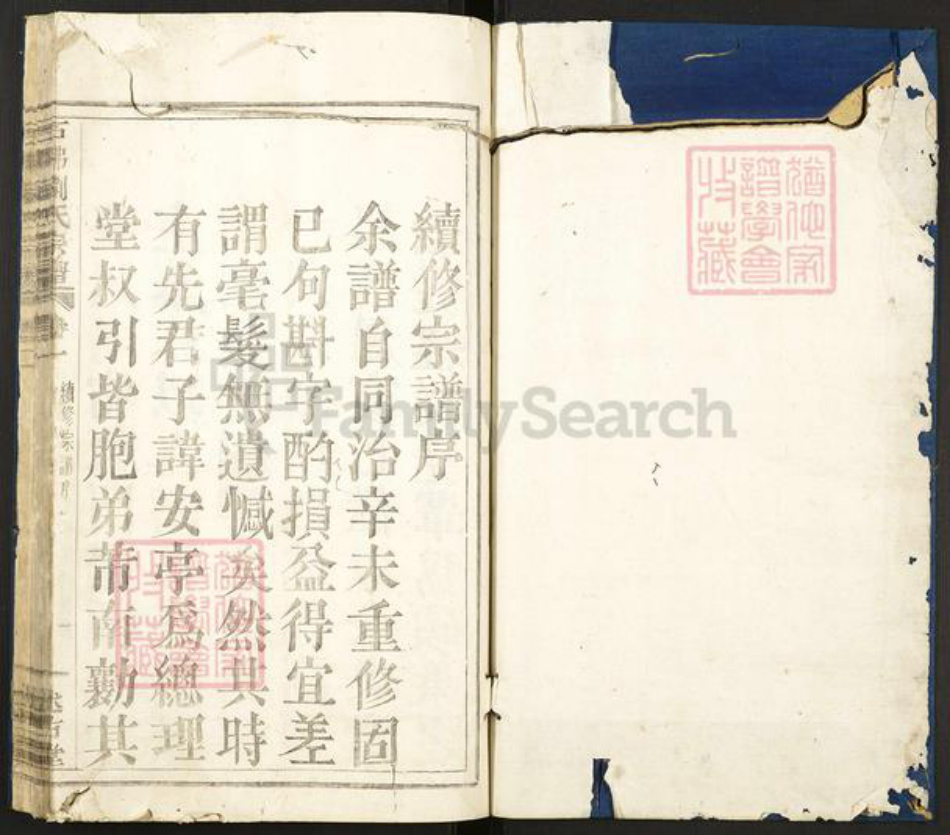 續修宗譜序
余譜自同治辛未重修固
已句斟字酌損益得宜差
謂毫髮無遺憾矣然其時
有先君子諱安亭為總理
堂叔引皆胞弟芾南勷其
劉氏宗譜
卷一
續修宗譜序
FamilySearch
譜學會
收藏